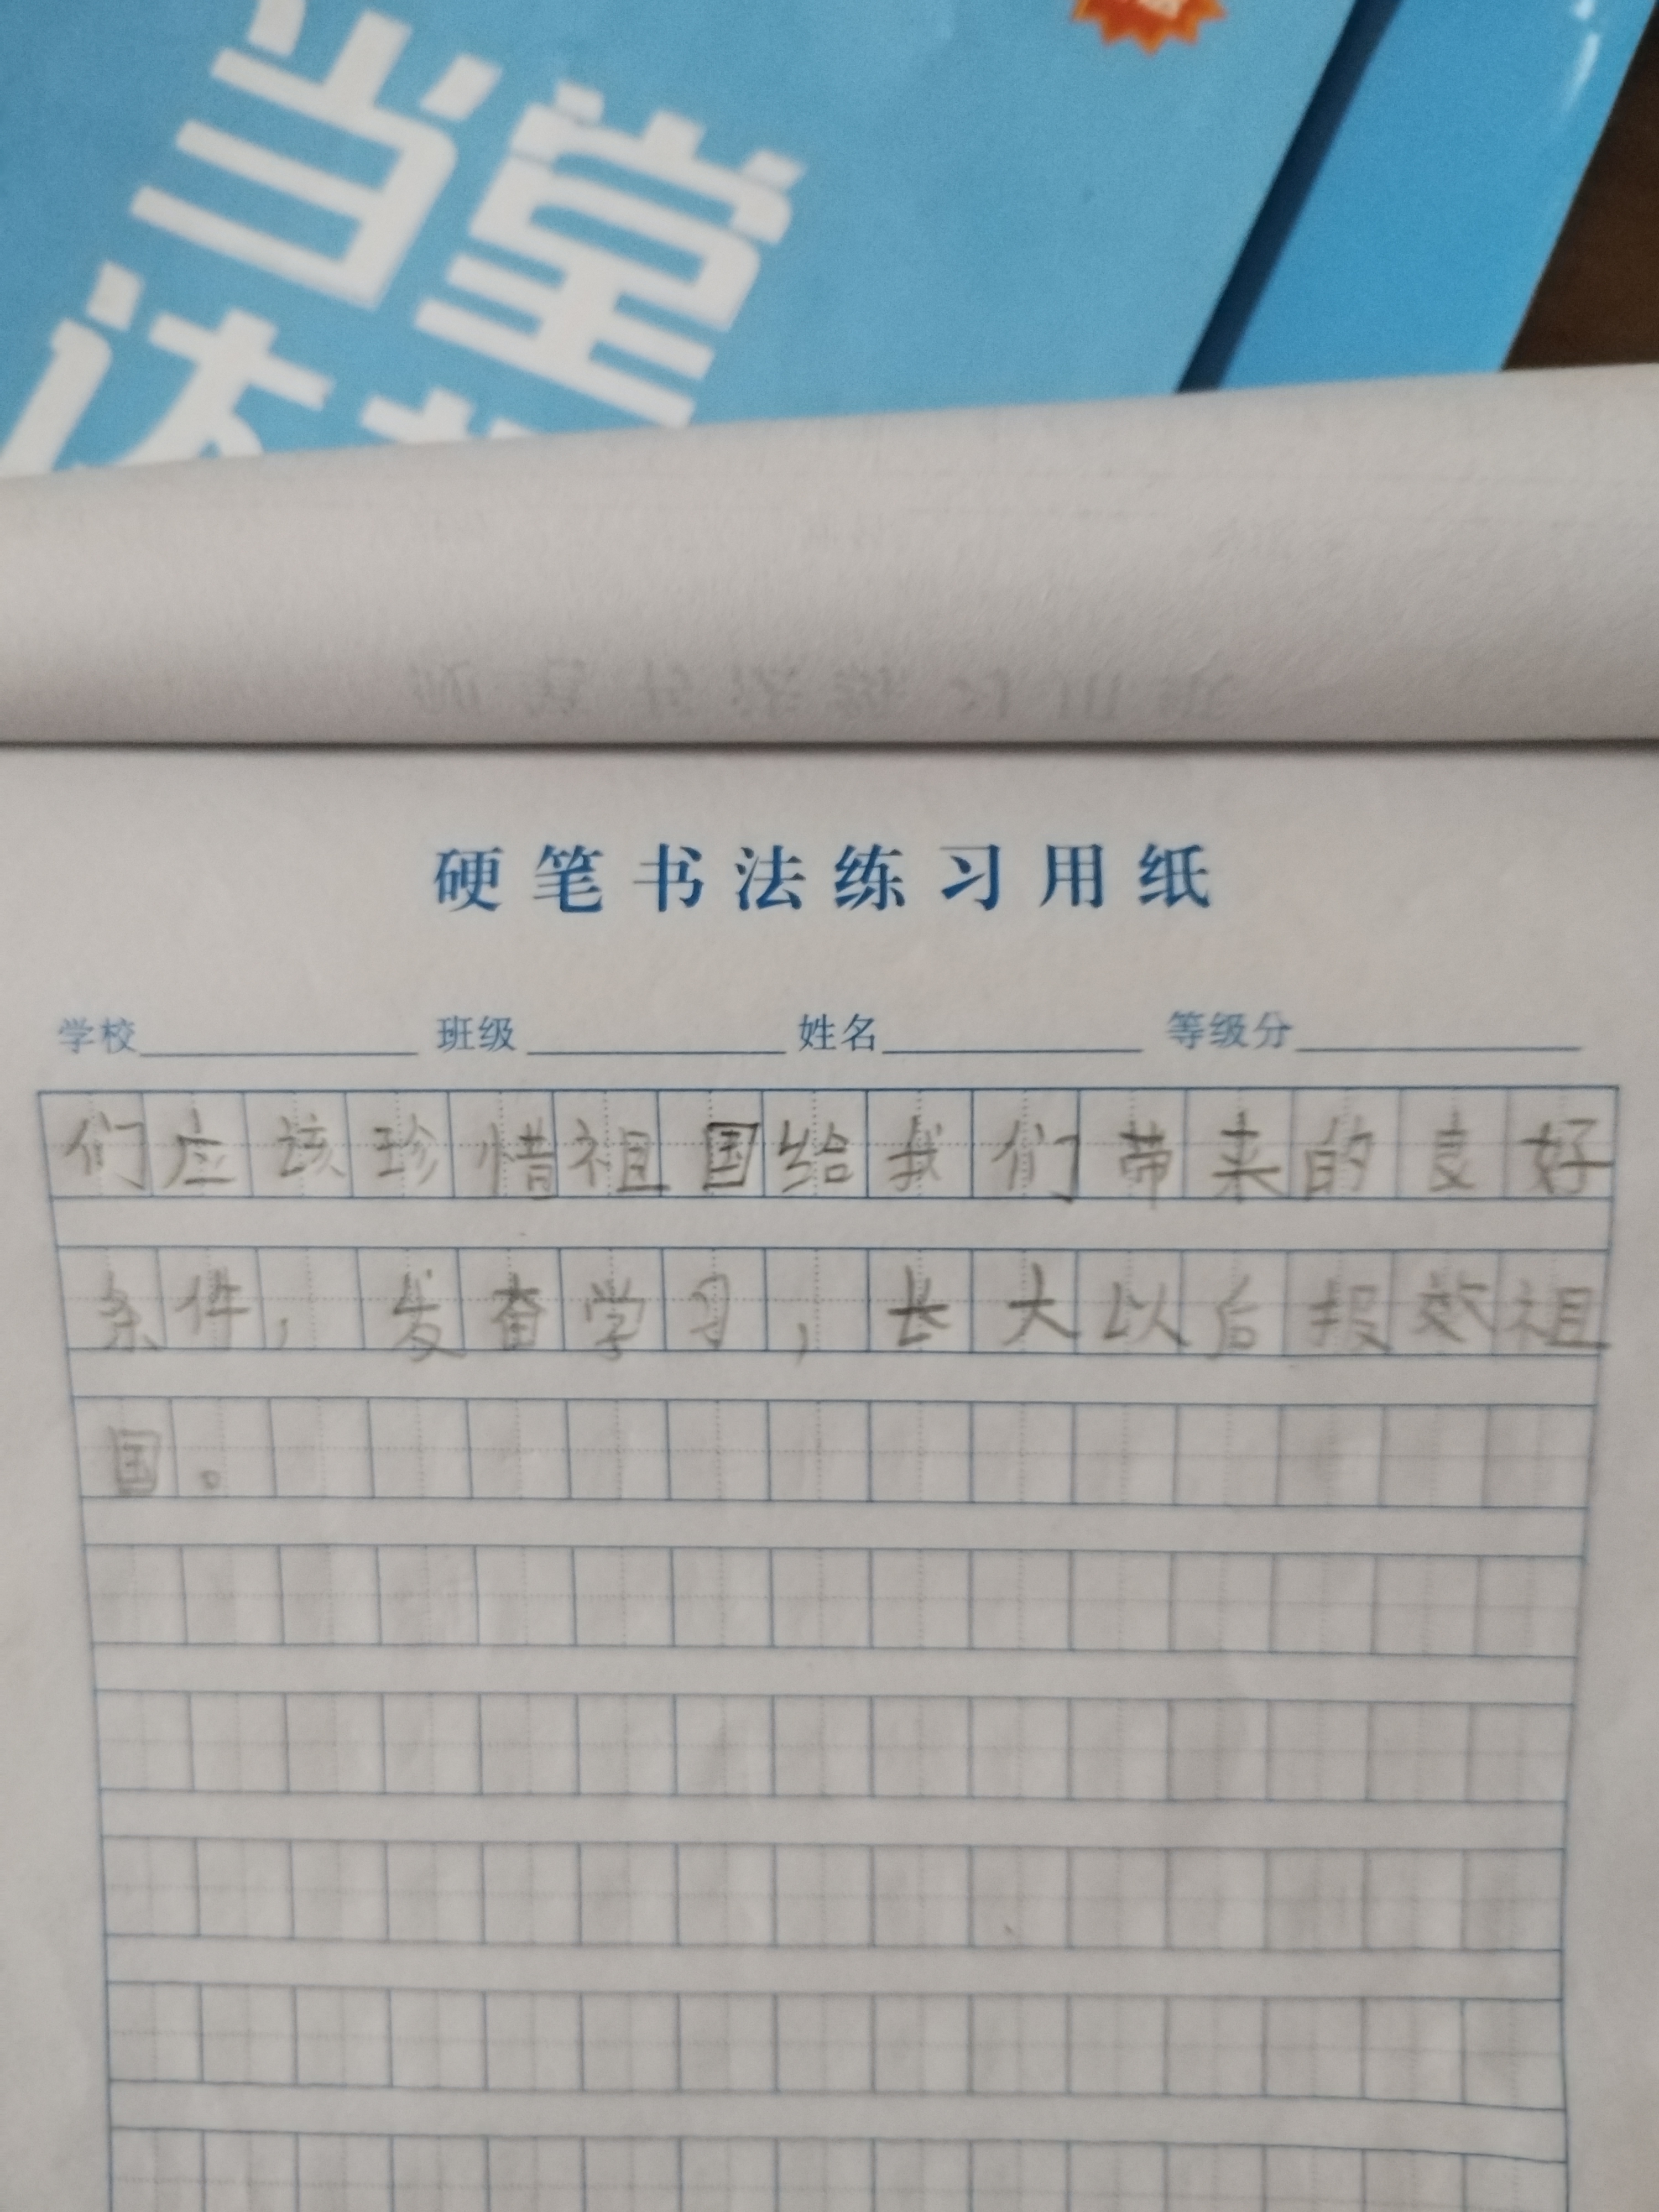 当堂
达标
硬笔书法练习用纸
学校 班级 姓名 等级分
们应该珍惜祖国给我们带来的良好
条件，发奋学习，长大以后报效祖
国。